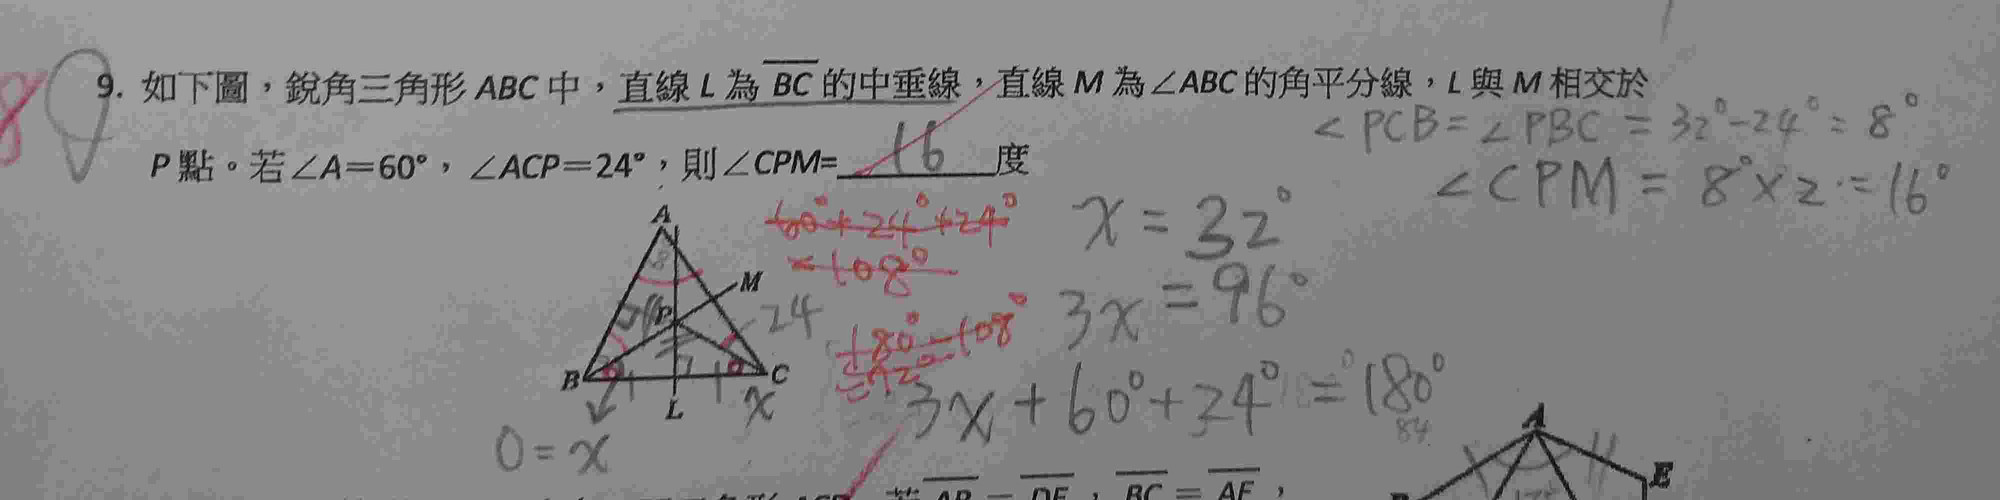 9. 如下圖，銳角三角形 ABC 中，直線 L 為 BC 的中垂線，直線 M 為∠ABC 的角平分線，L 與 M 相交於
P 點。若∠A=60°，∠ACP=24°，則∠CPM= 16 度
∠PCB=∠PBC = 32°-24° = 8°
∠CPM = 8°×2 = 16°
60°+24°+24°
=108°
180°-108°
=72°
x = 32°
3x = 96°
3x+60°+24° = 180°
84
A
M
P
24
B
C
L
x
0=x
A
E
BC = AE，